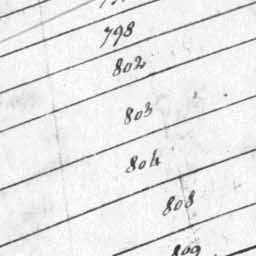 798
802
803
804
808
809